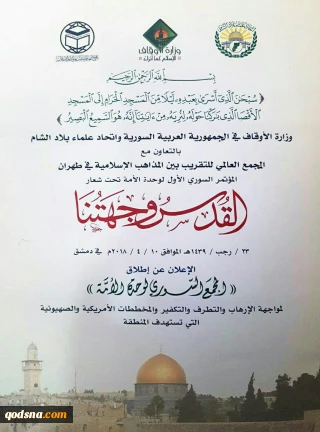 وزارة الأوقاف
بسم الله الرحمن الرحيم
﴿ سُبْحَنَ الَّذِي أَسْرَى بِعَبْدِهِ لَيْلًا مِنَ الْمَسْجِدِ الْحَرَامِ إِلَى الْمَسْجِدِ
الْأَقْصَا الَّذِي بَرَكْنَا حَوْلَهُ لِنُرِيَهُ مِنْ ءَايَتِنَا إِنَّهُ هُوَ السَّمِيعُ الْبَصِيرُ ﴾
وزارة الأوقاف في الجمهورية العربية السورية واتحاد علماء بلاد الشام
بالتعاون مع
المجمع العالمي للتقريب بين المذاهب الإسلامية في طهران
المؤتمر السوري الأول لوحدة الأمة تحت شعار
القدس وجهتنا
٢٣ / رجب / ١٤٣٩هـ الموافق ١٠ / ٤ / ٢٠١٨م في دمشق
الإعلان عن إطلاق
« المجمع السوري لوحدة الأمة »
لمواجهة الإرهاب والتطرف والتكفير والمخططات الأمريكية والصهيونية
التي تستهدف المنطقة
qodsna.com